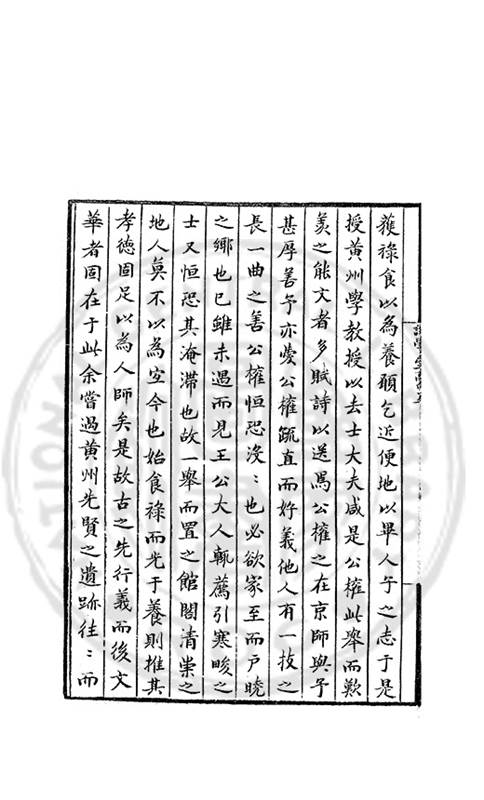 獲祿食以為養願乞近便地以畢人子之志于是
授黃州學教授以去士大夫咸是公權此舉而歎
羡之能文者多賦詩以送焉公權之在京師與予
甚厚善予亦愛公權疏直而好義他人有一技之
長一曲之善公權恒恐沒:也必欲家至而戶曉
之鄉也已雖未遇而見王公大人輒薦引寒畯之
士又恒恐其淹滯也故一舉而置之館閣清崇之
地人莫不以為宜今也始食祿而先于養則推其
孝德固足以為人師矣是故古之先行義而後文
華者固在于此余嘗過黃州先賢之遺跡往:而